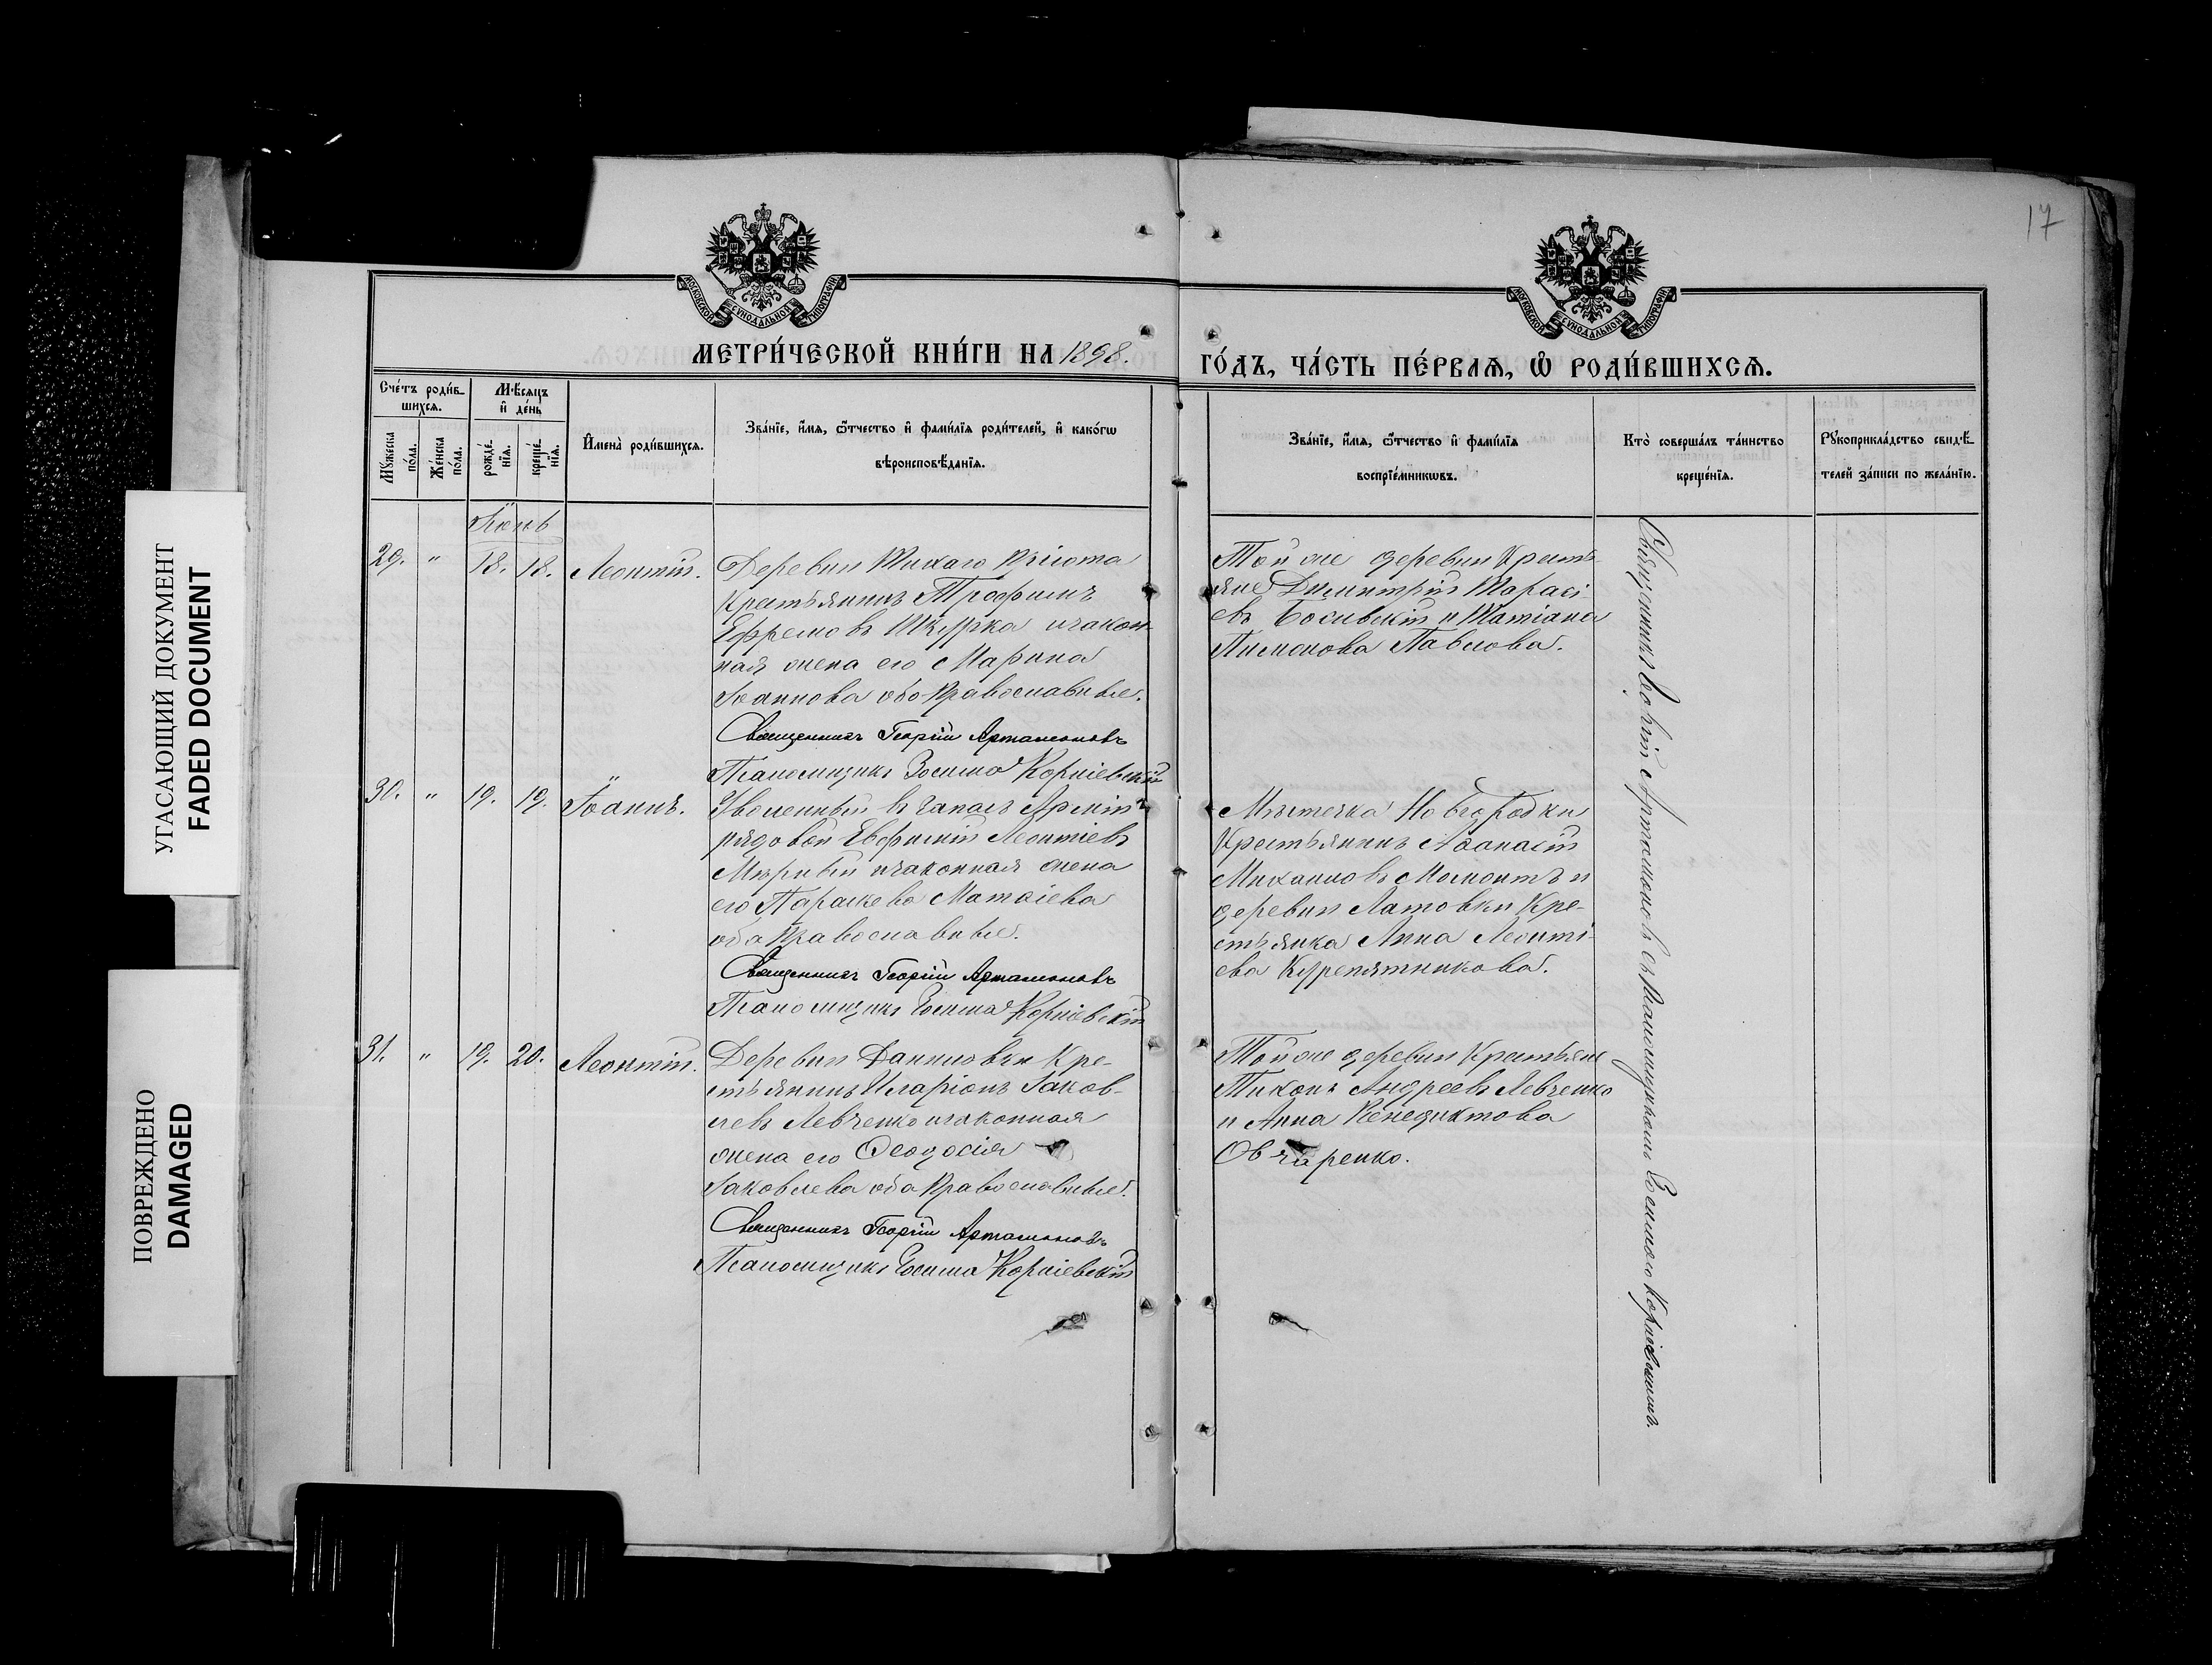 УГАСАЮЩИЙ ДОКУМЕНТ
FADED DOCUMENT
ПОВРЕЖДЕНО
DAMAGED
17
МОСКОВСКОЙ СѴНОДАЛЬНОЙ ТИПОГРАФІИ
МОСКОВСКОЙ СѴНОДАЛЬНОЙ ТИПОГРАФІИ
МЕТРИ́ЧЕСКОЙ КНИ́ГИ НА 1898.
ГО́ДЪ, ЧА́СТЬ ПЕ́РВАѦ, Ѡ҆ РОДИ́ВШИХСѦ.
Сче́тъ роди́в-
шихсѧ.
Мꙋ́жеска
по́ла.
Же́нска
по́ла.
Мѣ́сѧцъ
и҆ де́нь
рожде́-
нїѧ.
креще́-
нїѧ.
И҆мена̀ роди́вшихсѧ.
Зва́нїе, и҆́мѧ, ѻ҆́тчество и҆ фами́лїѧ роди́телей, и҆ како́гѡ
вѣроисповѣ́данїѧ.
Зва́нїе, и҆́мѧ, ѻ҆́тчество и҆ фами́лїѧ
воспрїе́мникѡвъ.
Кто̀ соверша́лъ та́инство
креще́нїѧ.
Рꙋкоприкла́дство свидѣ́-
телей за́писи по жела́нїю.
Іюнь
29. " 18. 18. Леонтій.
Деревни Тихаго Пріюта
крестьянинъ Трофимъ
Ефремовъ Шкурка и закон-
ная жена его Марина
Іоаннова оба православные.
Священникъ Георгій Артамоновъ
Псаломщикъ Зосима Корніевскій
Той же деревни крестья-
яне Димитрій Тарасі-
евъ и Татіана
Пимонова Павлова.
30. " 19. 19. Іоаннъ.
Уволенный въ запасъ Арміи
рядовой Евфимій Леонтіевъ
Мѣрный и законная жена
его Параскева Матѳіева
оба православные.
Священникъ Георгій Артамоновъ
Псаломщикъ Зосима Корніевскій
Мѣстечка Новгородки
крестьянинъ Аѳанасій
Михаиловъ и
деревни Латовки кре-
стьянка Анна Леонті-
ева Курепятникова.
31. " 19. 20. Леонтій.
Деревни Даниловки кре-
стьянинъ Иларіонъ Іаков-
левъ Левченко и законная
жена его Ѳеодосія
Іаковлева оба православные.
Священникъ Георгій Артамоновъ
Псаломщикъ Зосима Корніевскій
Той же деревни крестьяне
Тихонъ Андреевъ Левченко
и Анна Венедиктова
Овчаренко.
Священникъ Георгій Артамоновъ съ псаломщикомъ Зосимою Корніевскимъ.